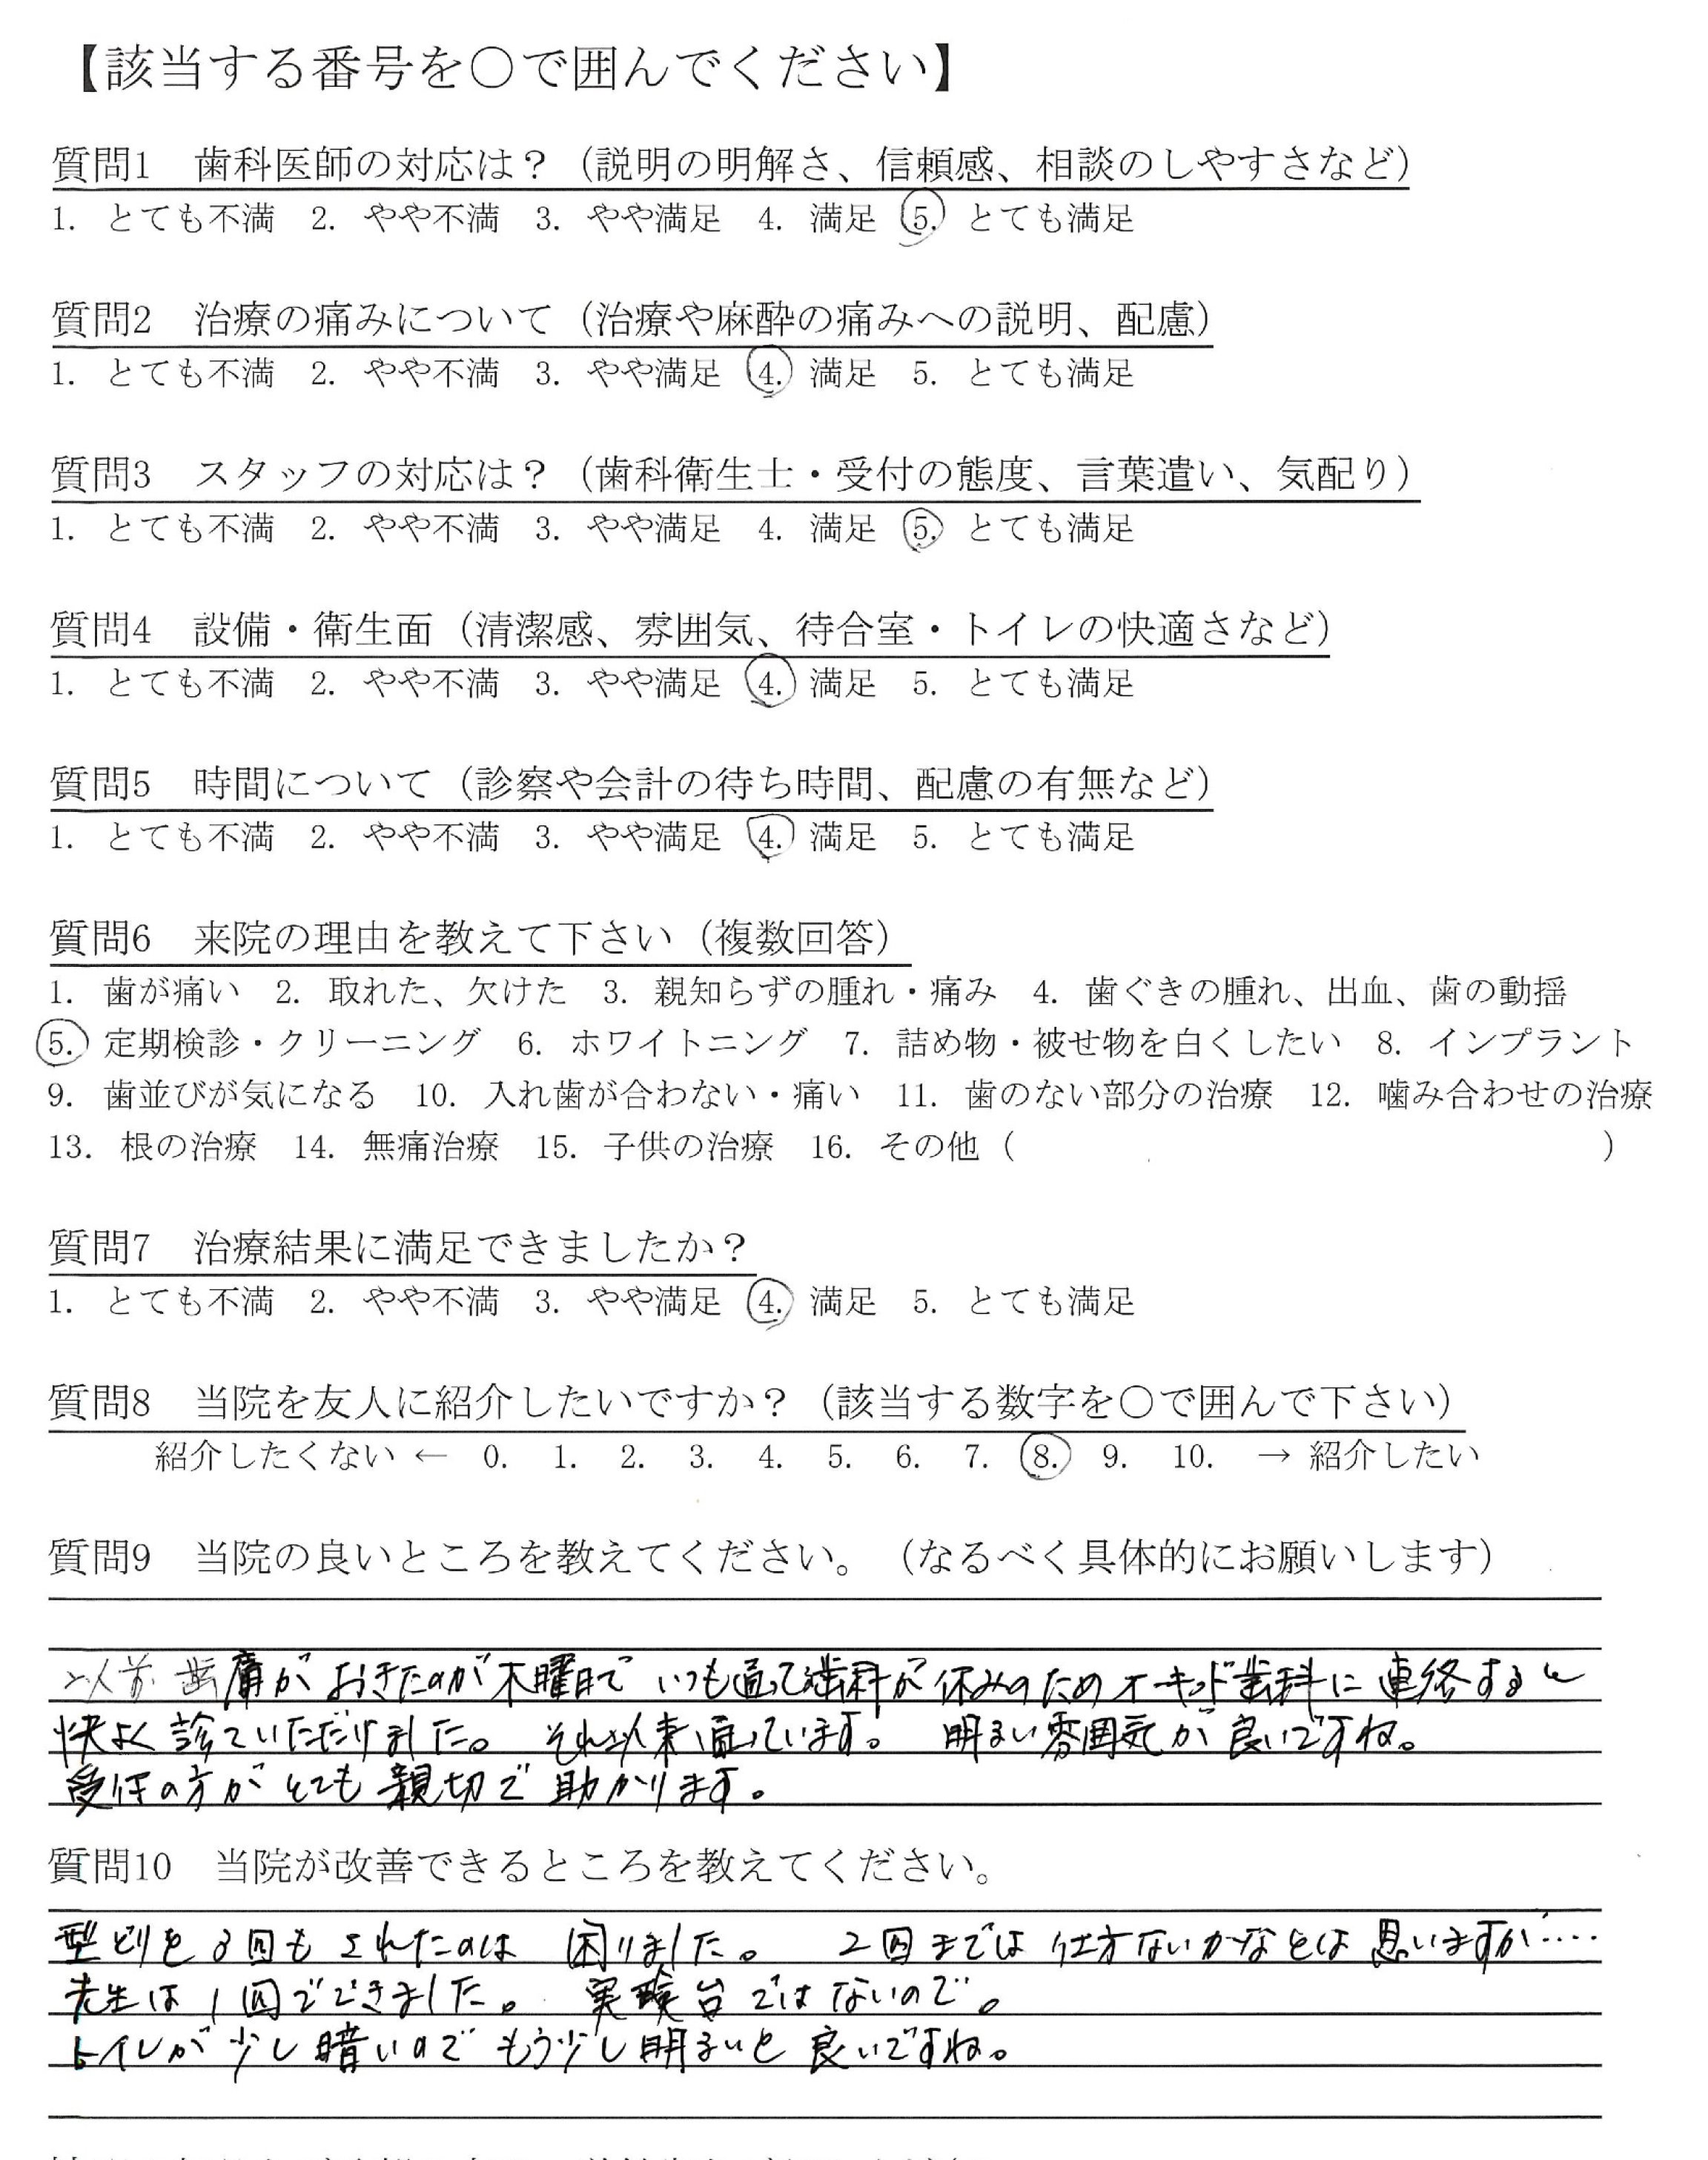 【該当する番号を○で囲んでください】
質問1　歯科医師の対応は？（説明の明解さ、信頼感、相談のしやすさなど）
1. とても不満　2. やや不満　3. やや満足　4. 満足　5. とても満足
質問2　治療の痛みについて（治療や麻酔の痛みへの説明、配慮）
1. とても不満　2. やや不満　3. やや満足　4. 満足　5. とても満足
質問3　スタッフの対応は？（歯科衛生士・受付の態度、言葉遣い、気配り）
1. とても不満　2. やや不満　3. やや満足　4. 満足　5. とても満足
質問4　設備・衛生面（清潔感、雰囲気、待合室・トイレの快適さなど）
1. とても不満　2. やや不満　3. やや満足　4. 満足　5. とても満足
質問5　時間について（診察や会計の待ち時間、配慮の有無など）
1. とても不満　2. やや不満　3. やや満足　4. 満足　5. とても満足
質問6　来院の理由を教えて下さい（複数回答）
1. 歯が痛い　2. 取れた、欠けた　3. 親知らずの腫れ・痛み　4. 歯ぐきの腫れ、出血、歯の動揺
5. 定期検診・クリーニング　6. ホワイトニング　7. 詰め物・被せ物を白くしたい　8. インプラント
9. 歯並びが気になる　10. 入れ歯が合わない・痛い　11. 歯のない部分の治療　12. 噛み合わせの治療
13. 根の治療　14. 無痛治療　15. 子供の治療　16. その他（　　　）
質問7　治療結果に満足できましたか？
1. とても不満　2. やや不満　3. やや満足　4. 満足　5. とても満足
質問8　当院を友人に紹介したいですか？（該当する数字を○で囲んで下さい）
紹介したくない ← 0. 1. 2. 3. 4. 5. 6. 7. 8. 9. 10. → 紹介したい
質問9　当院の良いところを教えてください。（なるべく具体的にお願いします）
以前 歯痛が おきたのが 木曜日で いつも通って歯科が 休みのため オーキッド歯科に 連絡すると
快よく 診ていただけました。 それ以来 通っています。 明るい 雰囲気が 良いですね。
受付の方が とても 親切で 助かります。
質問10　当院が改善できるところを教えてください。
型どりを 3回も されたのは 困りました。 2回までは 仕方ないかなとは 思いますが‥‥
先生は 1回でできました。 実験台ではないので。
トイレが 少し 暗いので もう少し 明るいと 良いですね。